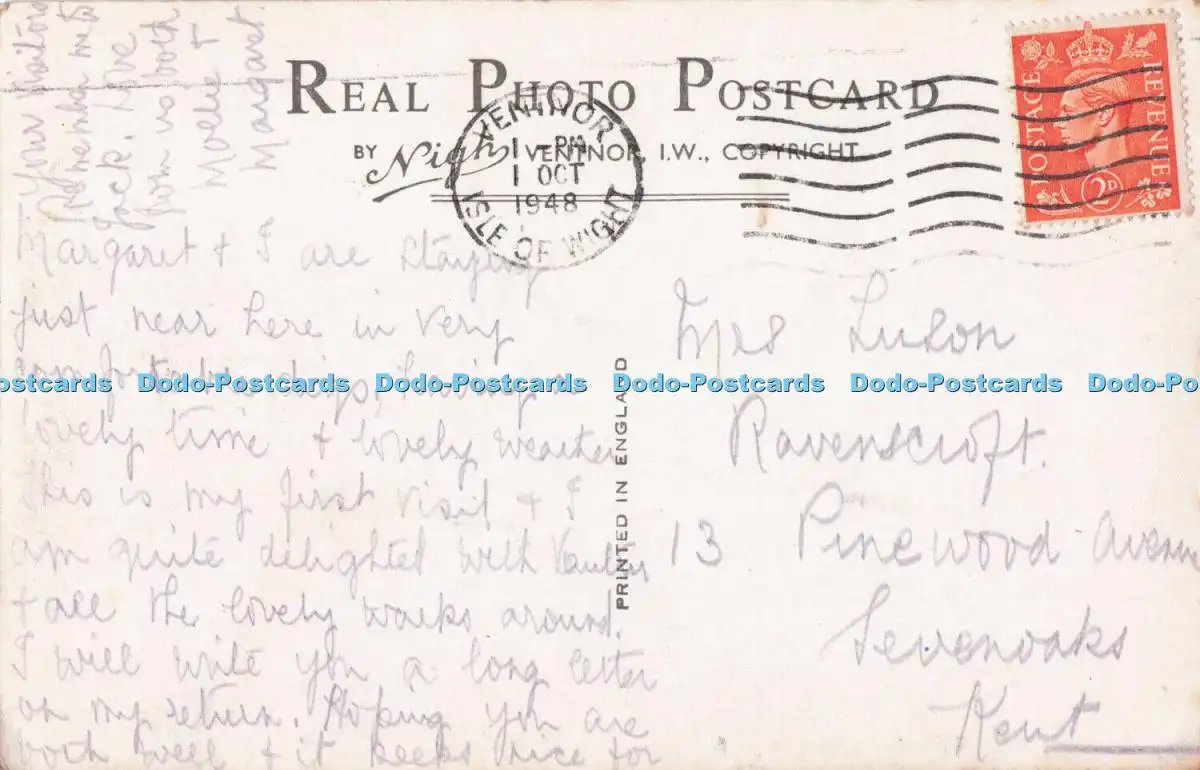 REAL PHOTO POSTCARD
BY Nigh VENTNOR, I.W., COPYRIGHT
VENTNOR
1 - PM
1 OCT
1948
ISLE OF WIGHT
POSTAGE REVENUE
2D
PRINTED IN ENGLAND
Margaret + I are staying
just near here in very
comfortable digs, having a
lovely time + lovely weather
This is my first visit + I
am quite delighted with
+ all the lovely walks around.
I will write you a long letter
on my return. Hoping you are
both well + it keeps nice for
your visitors
Remem me to
Jack. Love
from us both
Molly +
Margaret.
Mrs Luson
Ravenscroft.
13 Pinewood Avenue
Sevenoaks
Kent
Dodo-Postcards Dodo-Postcards Dodo-Postcards Dodo-Postcards Dodo-Postcards Dodo-Postcards